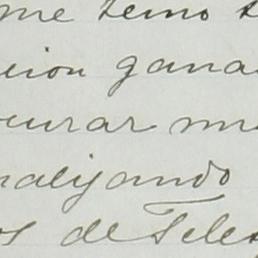 me temo
cion gana
curar m
nalizando
os de Tele